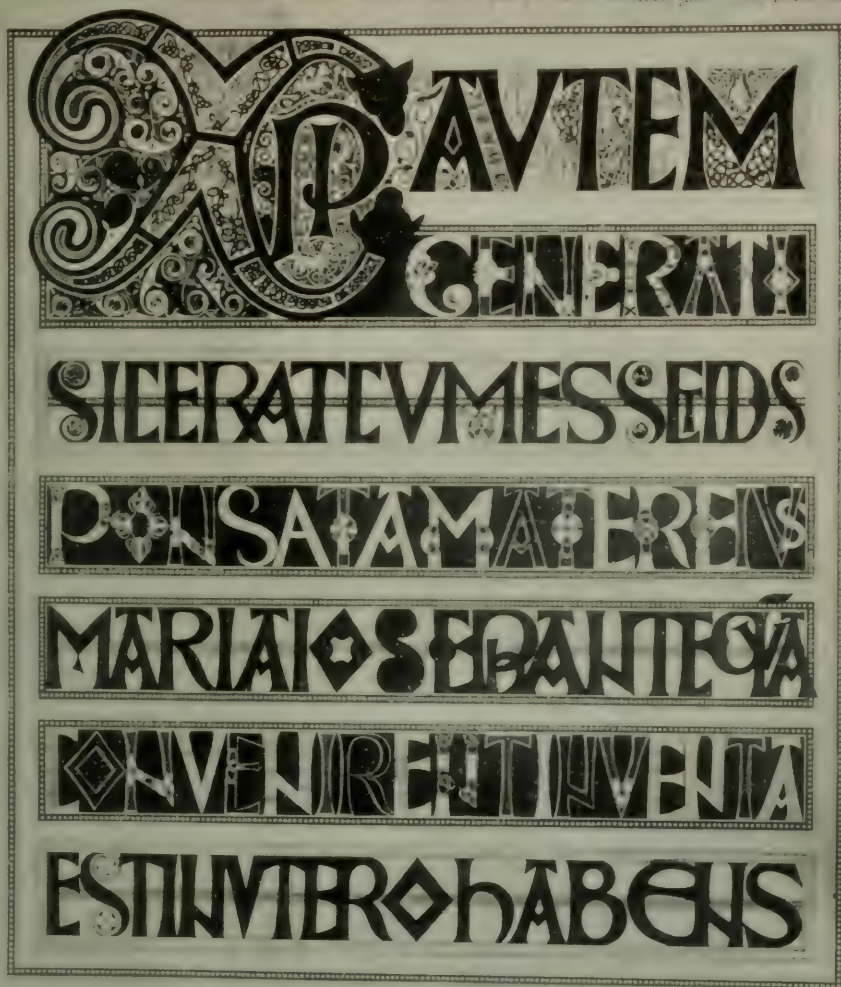 XPI AVTEM
GENERATI
SIC ERAT CVM ESSET DIS
PONSATA MATER EIVS
MARIA IOSEPH ANTEQVA
CONVENIRENT INVENTA
EST IN VTERO hABENS